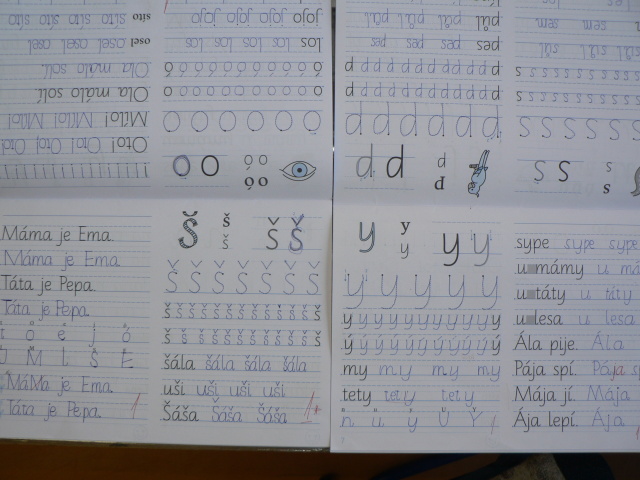 síto síto síto síto
osel osel osel osel
Ola málo solí. Ola málo solí.
Milo! Milo! Milo!
Oto! Oto! Oto! Oto!
jojo jojo jojo jojo jojo jojo
los los los los los los
ó ó ó ó ó ó ó ó ó ó ó ó
o o o o o o o o o o o o
O O O O O O O
O O o o
ó o
půl půl půl půl
pes pes pes pes
p p p p p p p p p p p
p p p p p p p p p p p
p p p p p p p
p p p
p
sem sem sem
sůl sůl sůl
s s s s s s s s s
s s s s s s s s s
S S S S S S
S S s
s
Máma je Ema.
Máma je Ema.
Táta je Pepa.
Táta je Pepa.
U M L Š E
MáMa je Ema.
Táta je Pepa. 1
Š š Š Š
š
Š Š Š Š Š Š Š
š š š š š š š š š š š š š
š š š š š š š š š š š š š
šála šála šála šála
uši uši uši uši
Šáša Šáša Šáša 1+
y y y y
y
y y y y y
y y y y y y y y y y y
ý ý ý ý ý ý ý ý ý ý ý
my my my my
tety tety tety
n u y U Y 1
sype sype sype
u mámy u má
u táty u táty
u lesa u lesa
Ála pije. Ála
Pája spí. Pája sp
Mája jí. Mája
Ája lepí. Ája